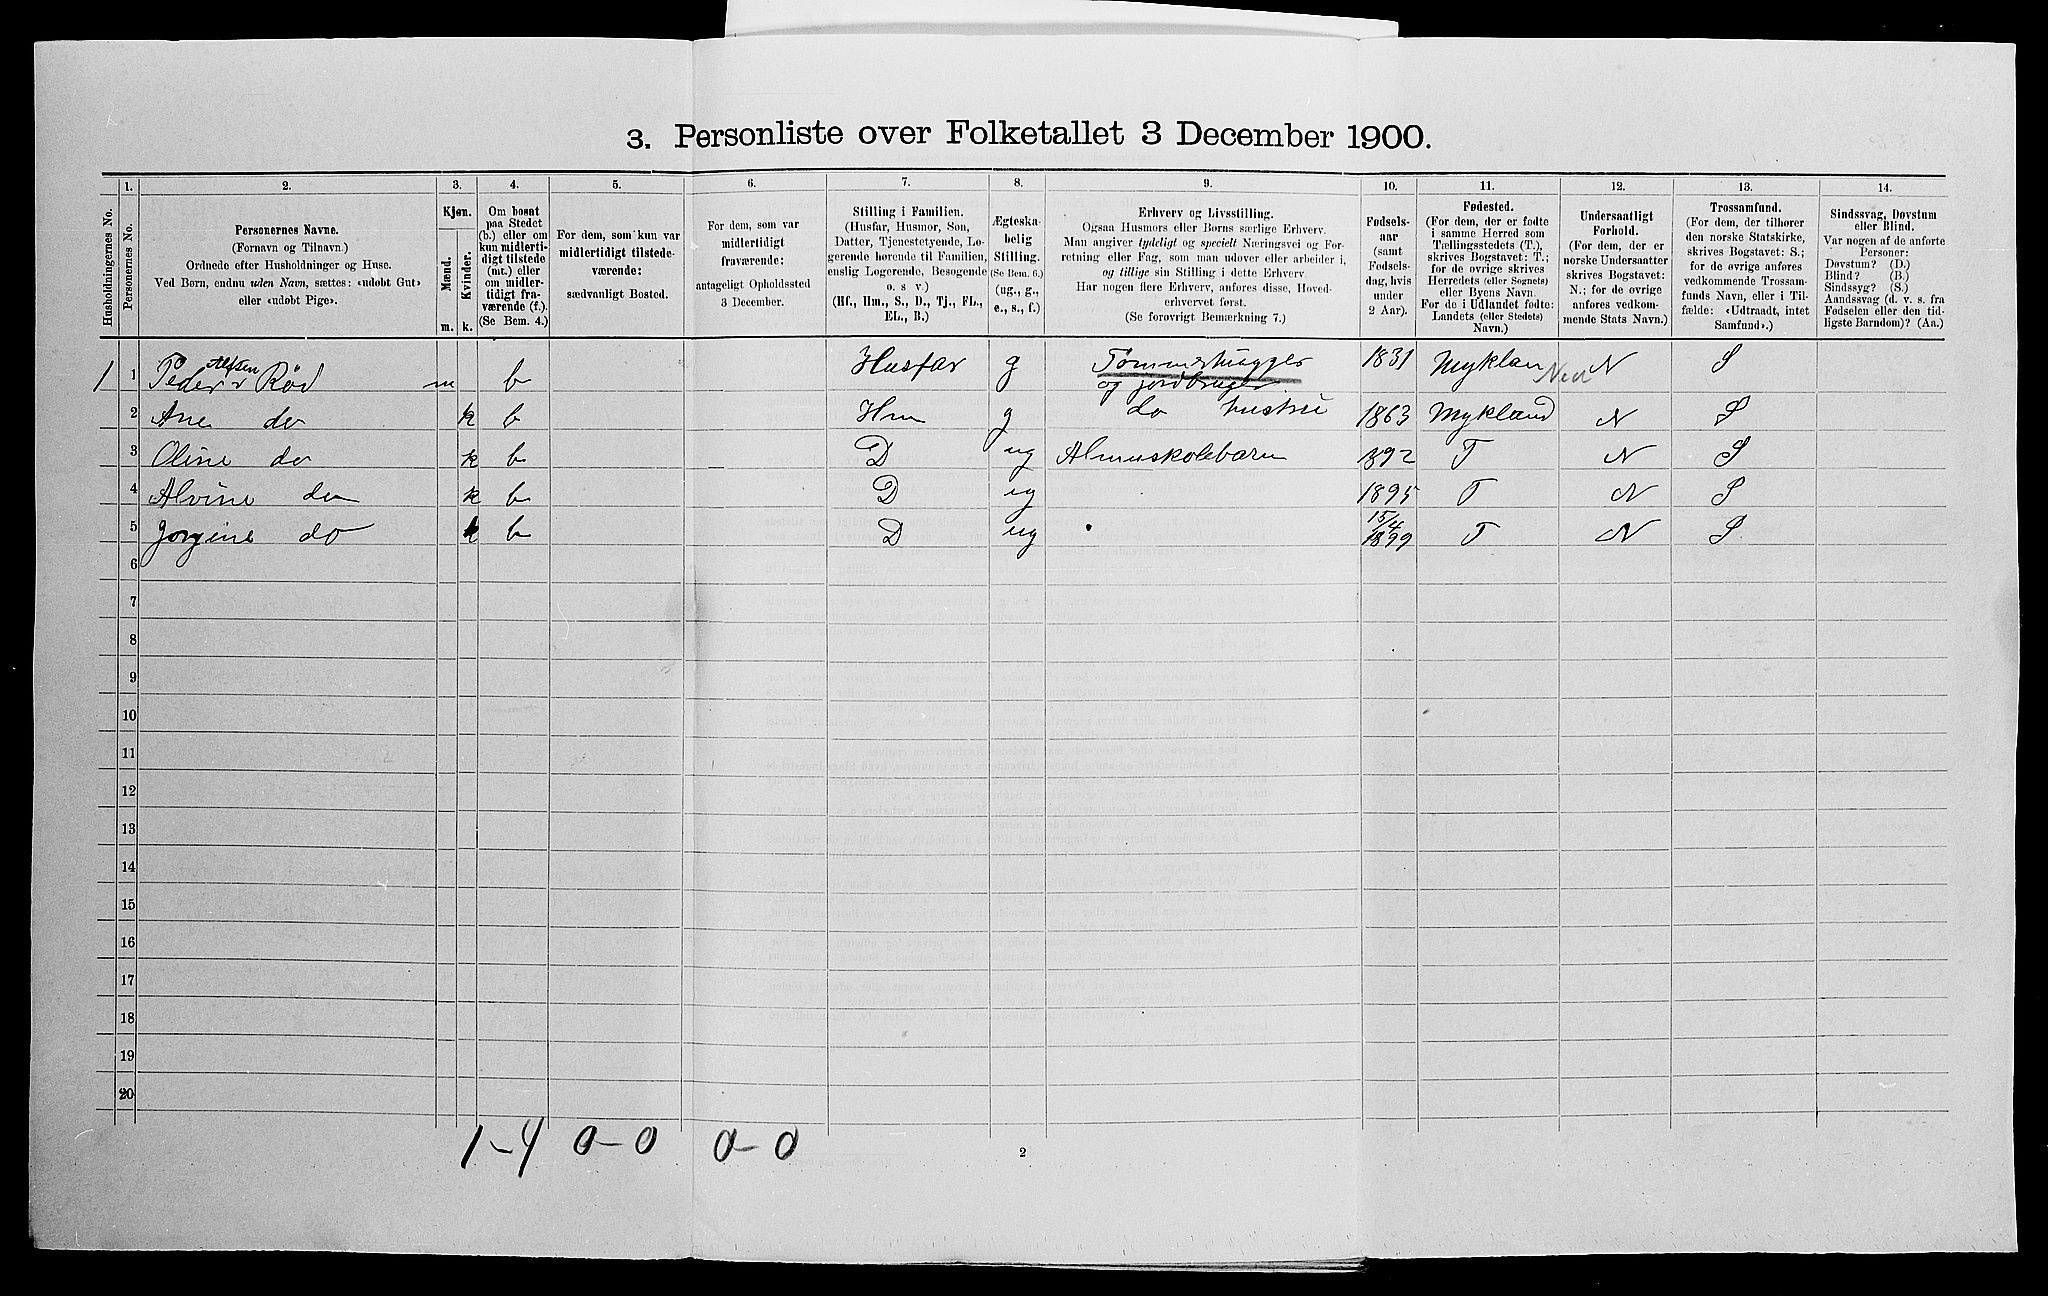 3. Personliste over Folketallet 3 December 1900.
1. 2. 3. 4. 5. 6. 7. 8. 9. 10. 11. 12. 13. 14.
Husholdningernes No.
Personernes No.
Personernes Navne.
(Fornavn og Tilnavn.)
Ordnede efter Husholdninger og Huse.
Ved Børn, endnu uden Navn, sættes: «udøbt Gut»
eller «udøbt Pige».
Kjøn.
Mænd.
Kvinder.
m. k.
Om bosat
paa Stedet
(b.) eller om
kun midlerti-
digt tilstede
(mt.) eller
om midler-
tidigt fra-
værende (f.).
(Se Bem. 4.)
For dem, som kun var
midlertidigt tilstede-
værende:
sædvanligt Bosted.
For dem, som var
midlertidigt
fraværende:
antageligt Opholdssted
3 December.
Stilling i Familien.
(Husfar, Husmor, Søn,
Datter, Tjenestetyende, Lo-
gerende hørende til Familien,
enslig Logerende, Besøgende
o. s. v.)
(Hf., Hm., S., D., Tj., FL.,
EL., B.)
Ægteska-
belig
Stilling.
(Se Bem. 6.)
(ug., g.,
e., s., f.)
Erhverv og Livsstilling.
Ogsaa Husmors eller Børns særlige Erhverv.
Man angiver tydeligt og specielt Næringsvei og For-
retning eller Fag, som man udover eller arbeider i,
og tillige sin Stilling i dette Erhverv.
Har nogen flere Erhverv, anføres disse, Hoved-
erhvervet først.
(Se forøvrigt Bemærkning 7.)
Fødsels-
aar
(samt
Fødsels-
dag, hvis
under
2 Aar).
Fødested.
(For dem, der er fødte
i samme Herred som
Tællingsstedets (T.),
skrives Bogstavet: T.;
for de øvrige skrives
Herredets (eller Sognets)
eller Byens Navn.
For de i Udlandet fødte:
Landets (eller Stedets)
Navn.)
Undersaatligt
Forhold.
(For dem, der er
norske Undersaatter
skrives Bogstavet:
N.; for de øvrige
anføres vedkom-
mende Stats Navn.)
Trossamfund.
(For dem, der tilhører
den norske Statskirke,
skrives Bogstavet: S.;
for de øvrige anføres
vedkommende Trossam-
funds Navn, eller i Til-
fælde: «Udtraadt, intet
Samfund».)
Sindssvag, Døvstum
eller Blind.
Var nogen af de anførte
Personer:
Døvstum? (D.)
Blind? (B.)
Sindssyg? (S.)
Aandssvag (d. v. s. fra
Fødselen eller den tid-
ligste Barndom)? (Aa.)
1 1 Peder Rød m b Husfar g Tømmerhugger 1831 Mykland N S
og jordbruger
2 Ane do k b Hm g do hustru 1863 Mykland N S
3 Oline do k b D ug Almuskolebarn 1892 T N S
4 Alvine do k b D ug 1895 T N S
5 Jorgine do k b D ug 15/4 1899 T N S
6
7
8
9
10
11
12
13
14
15
16
17
18
19
20
1-4 0-0 0-0
2